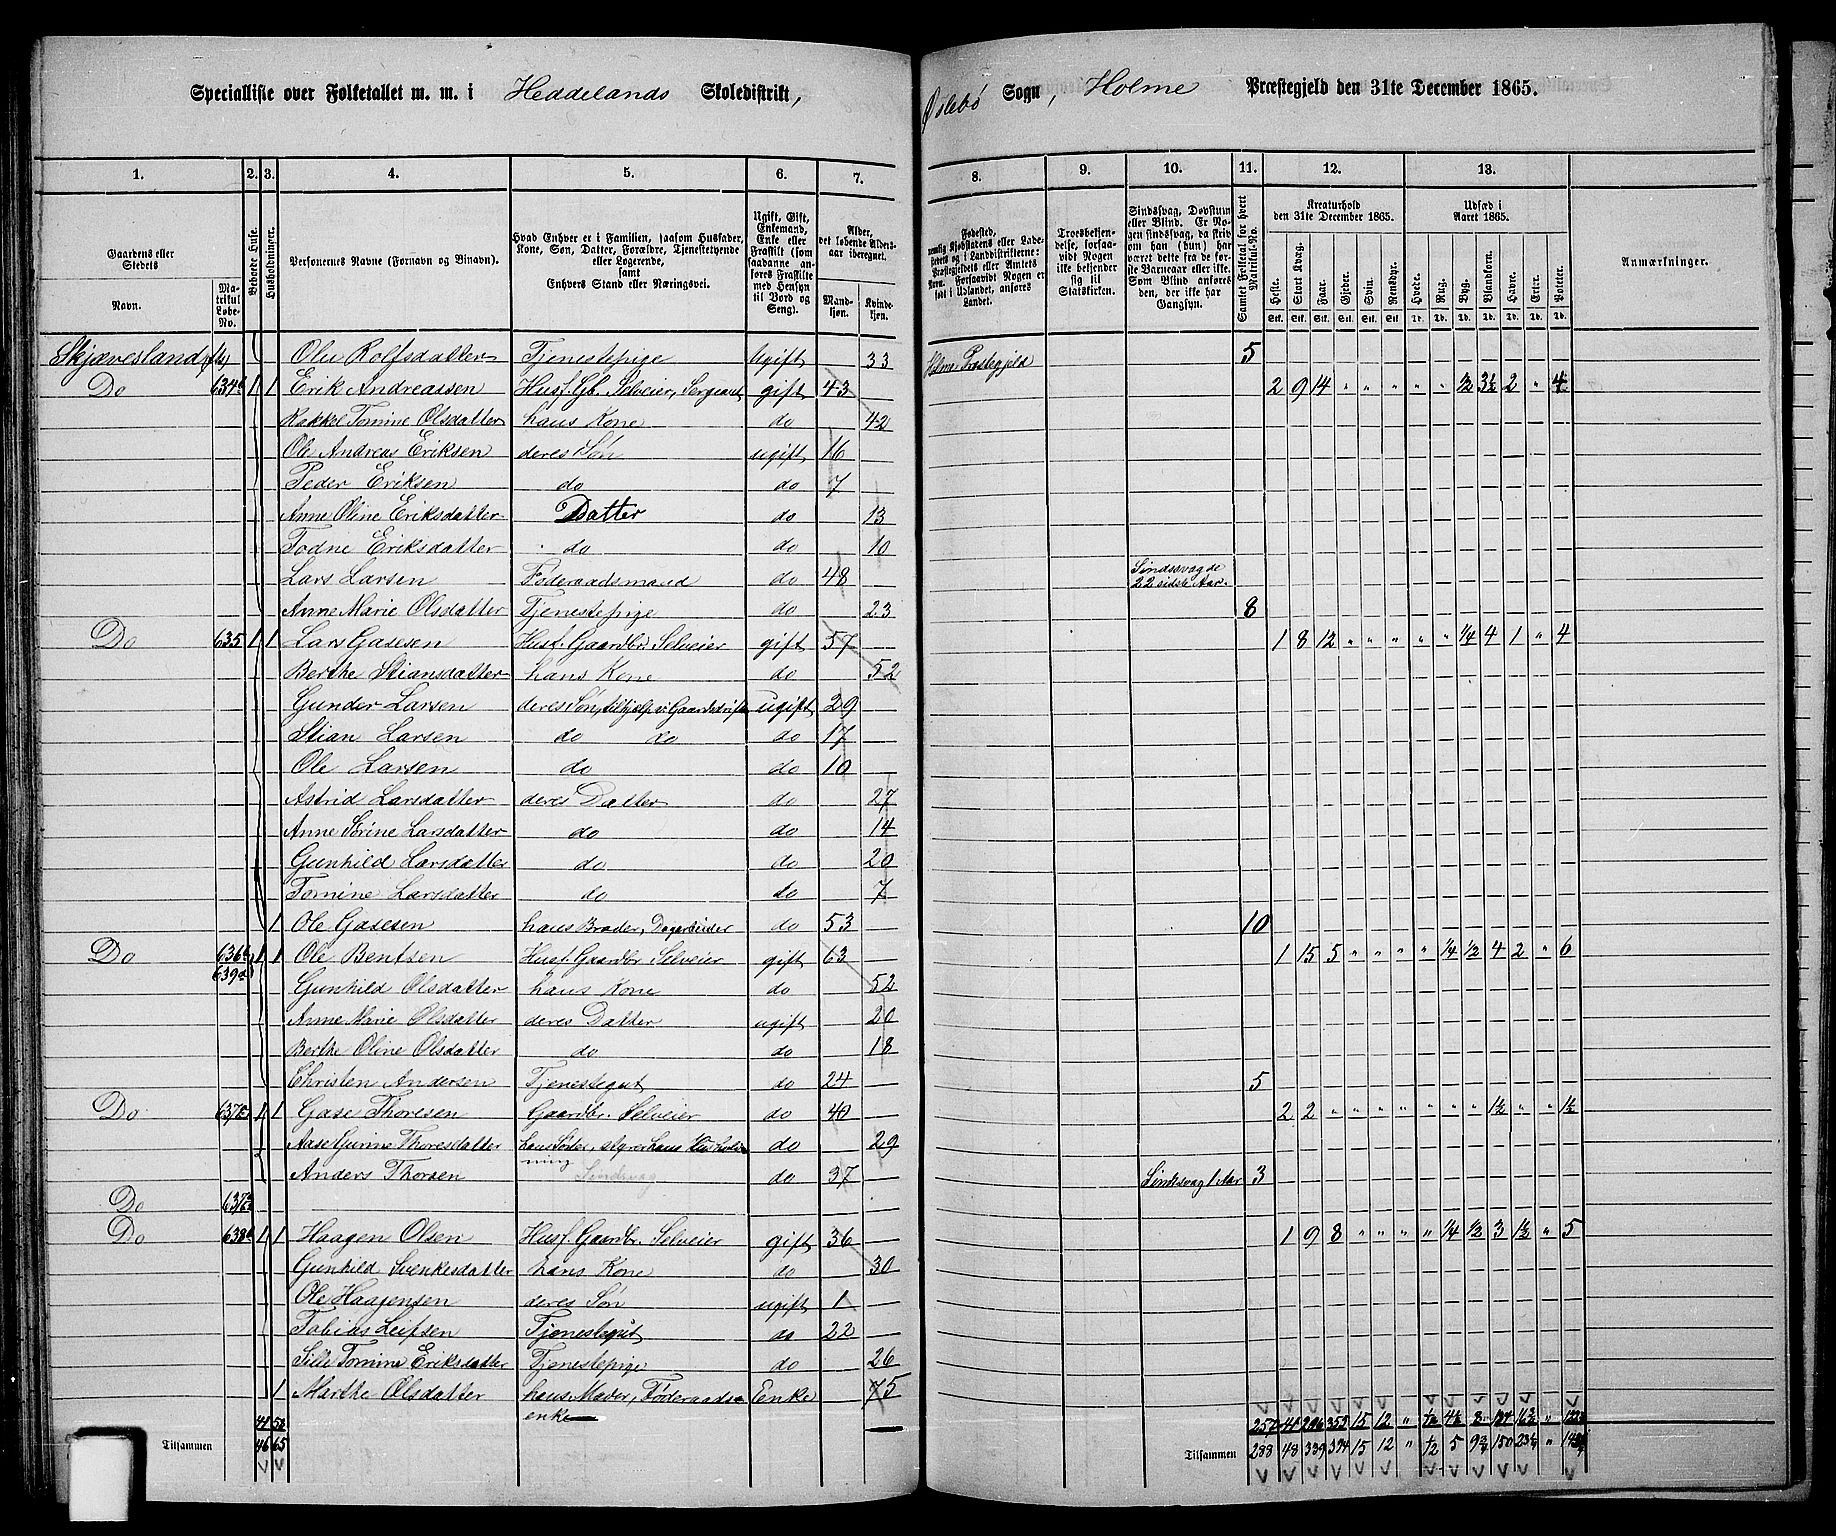 Specialliste over Folketallet m. m. i Heddelands Skoledistrikt, Øslebø Sogn, Holme Præstegjeld den 31te December 1865.
1. 2. 3. 4. 5. 6. 7. 8. 9. 10. 11. 12. 13.
Gaardens eller Stedets Navn. Matrikul Løbe-No. Beboede Huse. Husholdninger. Personernes Navne (Fornavn og Binavn). Hvad Enhver er i Familien, saasom Husfader, Kone, Søn, Datter, Forældre, Tjenestetyende eller Logerende, samt Enhvers Stand eller Næringsvei. Ugift, Gift, Enkemand, Enke eller Fraskilt (som saadanne anføres Fraskilte med Hensyn til Bord og Seng). Alder, det løbende Aldersaar iberegnet. Mandkjøn. Kvindekjøn.
Fødested, nemlig Kjøbstadens eller Ladestedets og i Landdistrikterne: Præstegjeldets eller Amtets Navn. Forsaavidt Nogen er født i Udlandet, anføres Landet. Troesbekjendelse, forsaavidt Nogen ikke bekjender sig til Statskirken. Sindssvag, Døvstum eller Blind. Er Nogen sindssvag, da skriv om han (hun) har været dette fra de første Barneaar eller ikke. Som Blind anføres den, der ikke har Gangsyn. Samlet Folketal for hvert Matrikul-No. Kreaturhold den 31te December 1865. Udsæd i Aaret 1865. Anmærkninger.
Heste. Stort Kvæg. Faar. Gjeder. Svin. Rensdyr. Hvede. Rug. Byg. Blandkorn. Havre. Erter. Poteter.
Stk. Stk. Stk. Stk. Stk. Stk. Td. Td. Td. Td. Td. Td. Td.
Skjævesland Olu Rolfsdatter Tjenestepige Ugift 33 Holme Præstegjeld 5
Do 634b 1 1 Erik Andreassen Husf. Gb. Selveier, Sergeant gift 43 2 9 14 " " " " " ½ 3½ 2 " 4
Rakkel Tomine Olsdatter hans Kone do 42
Ole Andreas Eriksen deres Søn ugift 16
Peder Eriksen do do 7
Anne Oline Eriksdatter Datter do 13
Todne Eriksdatter do do 10
Lars Larsen Føderaadsmand do 48 Sindssvag de 22 sidste Aar.
Anne Marie Olsdatter Tjenestepige do 23 8
Do 635 1 1 Lars Gasesen Husf. Gaardbr. Selveier gift 57 1 8 12 " " " " " ¼ 4 1 " 4
Berthe Stiansdatter hans Kone do 52
Gunder Larsen deres Søn, tilhjelp v. Gaardsdriften ugift 29
Stian Larsen do do do 17
Ole Larsen do do 10
Astrid Larsdatter deres Datter do 27
Anne Sørine Larsdatter do do 14
Gunhild Larsdatter do do 20
Tomine Larsdatter do do 7
1 Ole Gasesen hans Broder, Dagarbeider do 53 10
Do 636b 639a 1 1 Ole Bentsen Husf. Gaardbr Selveier gift 63 1 15 5 " " " " ¼ ½ 4 2 " 6
Gunhild Olsdatter hans Kone do 52
Anne Marie Olsdatter deres Datter ugift 20
Berthe Oline Olsdatter do do 18
Christen Andersen Tjenestegut do 24 5
Do 637 1 1 Gase Thoresen Gaardbr. Selveier do 40 2 2 " " " " " " " 1½ " " 1½
Aase Gurine Thoresdatter hans Søster, styrer hans Husholdning do 29
Anders Thorsen Sindsvag do 37 Sindssvag 1 Aar 3
Do 637
Do 638 1 1 Haagen Olsen Husf. Gaardbr. Selveier gift 36 1 9 8 " " " " ¼ ½ 3 1½ " 5
Gunhild Svenkesdatter hans Kone do 30
Ole Haagensen deres Søn ugift 1
Tobias Leifsen Tjenestegut do 22
Sille Tomine Eriksdatter Tjenestepige do 26
1 Marthe Olsdatter hans Moder, Føderaads- Enke 75
enke
257 296 352 15 12 "
Tilsammen 46 65 Tilsammen 288 48 339 394 15 12 " ½ 5 150 "